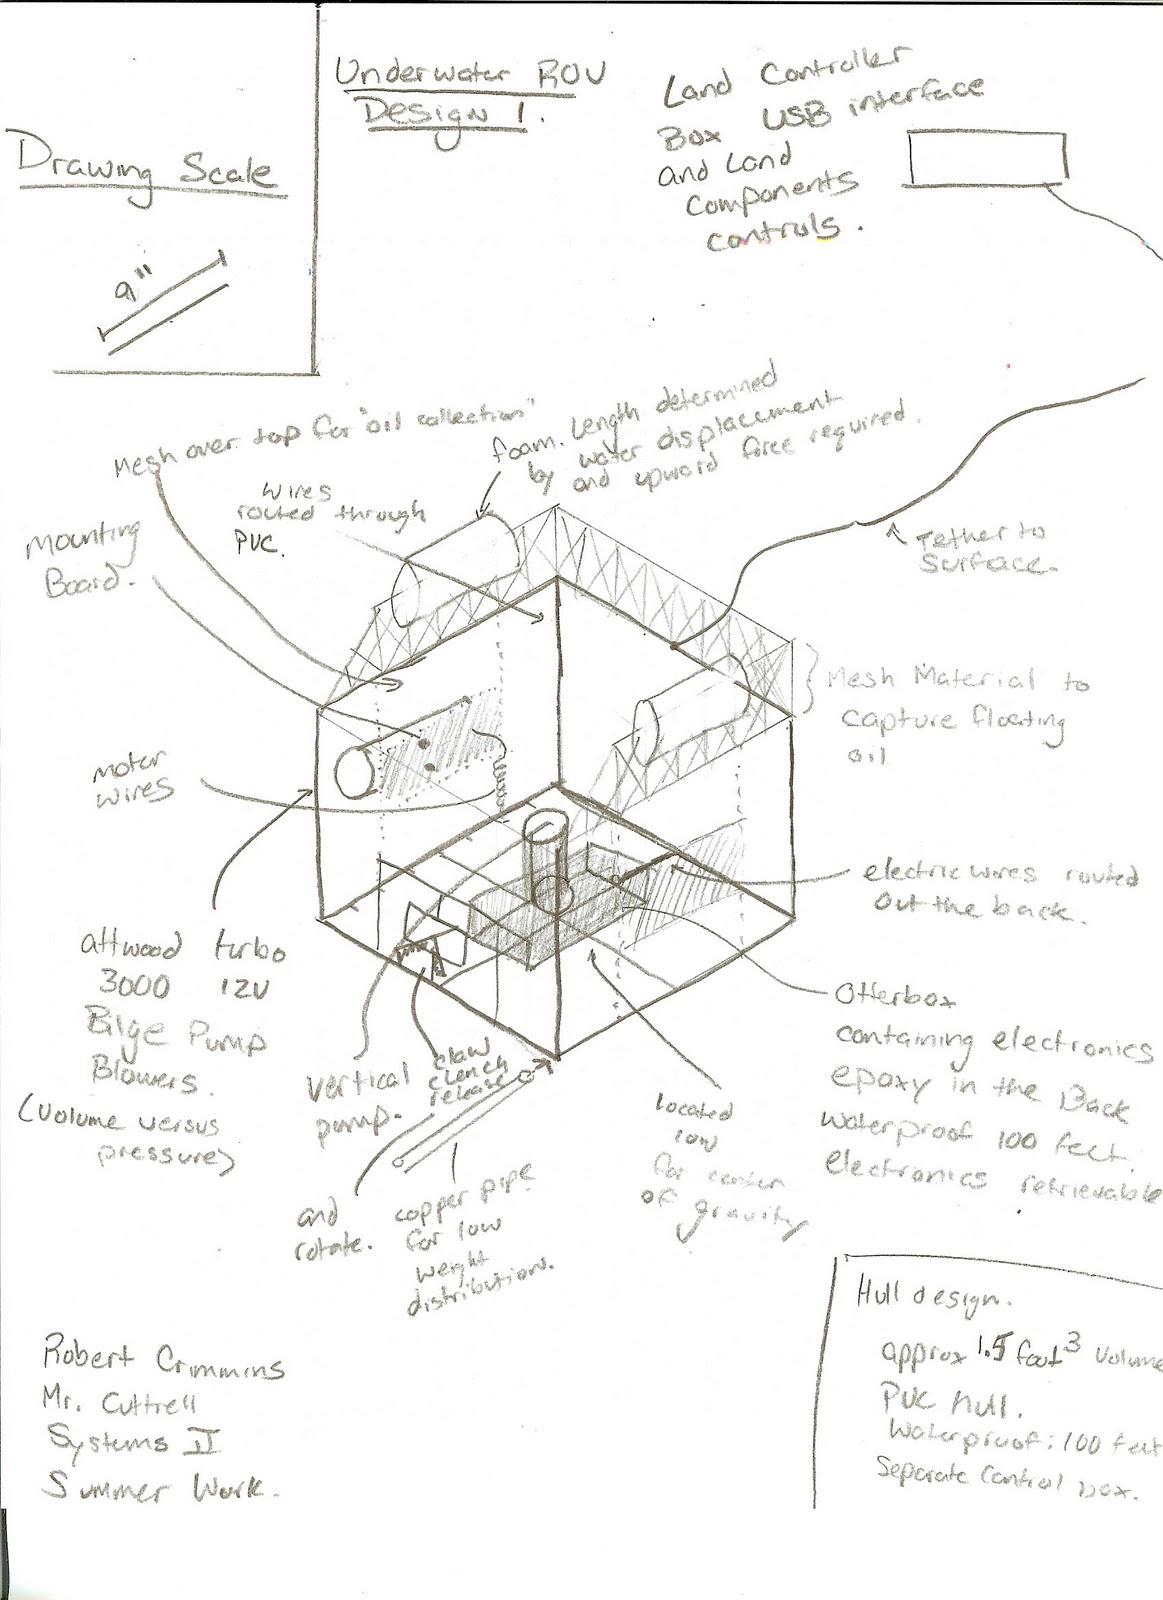 Underwater ROV
Design 1.
Land Controller
Box USB interface
and Land
Components
controls.
Drawing Scale
9"
Mesh over top for "oil collection"
foam. Length determined
by water displacement
and upward force required.
wires
routed through
PVC.
Mounting
Board.
Tether to
Surface.
Mesh Material to
capture floating
oil
motor
wires
electric wires routed
Out the back.
attwood turbo
3000 12V
Bilge Pump
Blowers.
(volume versus
pressure)
Vertical
pump.
claw
clench
release
and
rotate.
copper pipe
for low
weight
distribution.
located
low
for center
of gravity
Otterbox
containing electronics
epoxy in the Back
waterproof 100 feet.
electronics retrievable
Hull design.
approx 1.5 foot3 volume
PVC Hull.
Waterproof: 100 feet
Separate Control box.
Robert Crimmins
Mr. Cuttrell
Systems II
Summer Work.